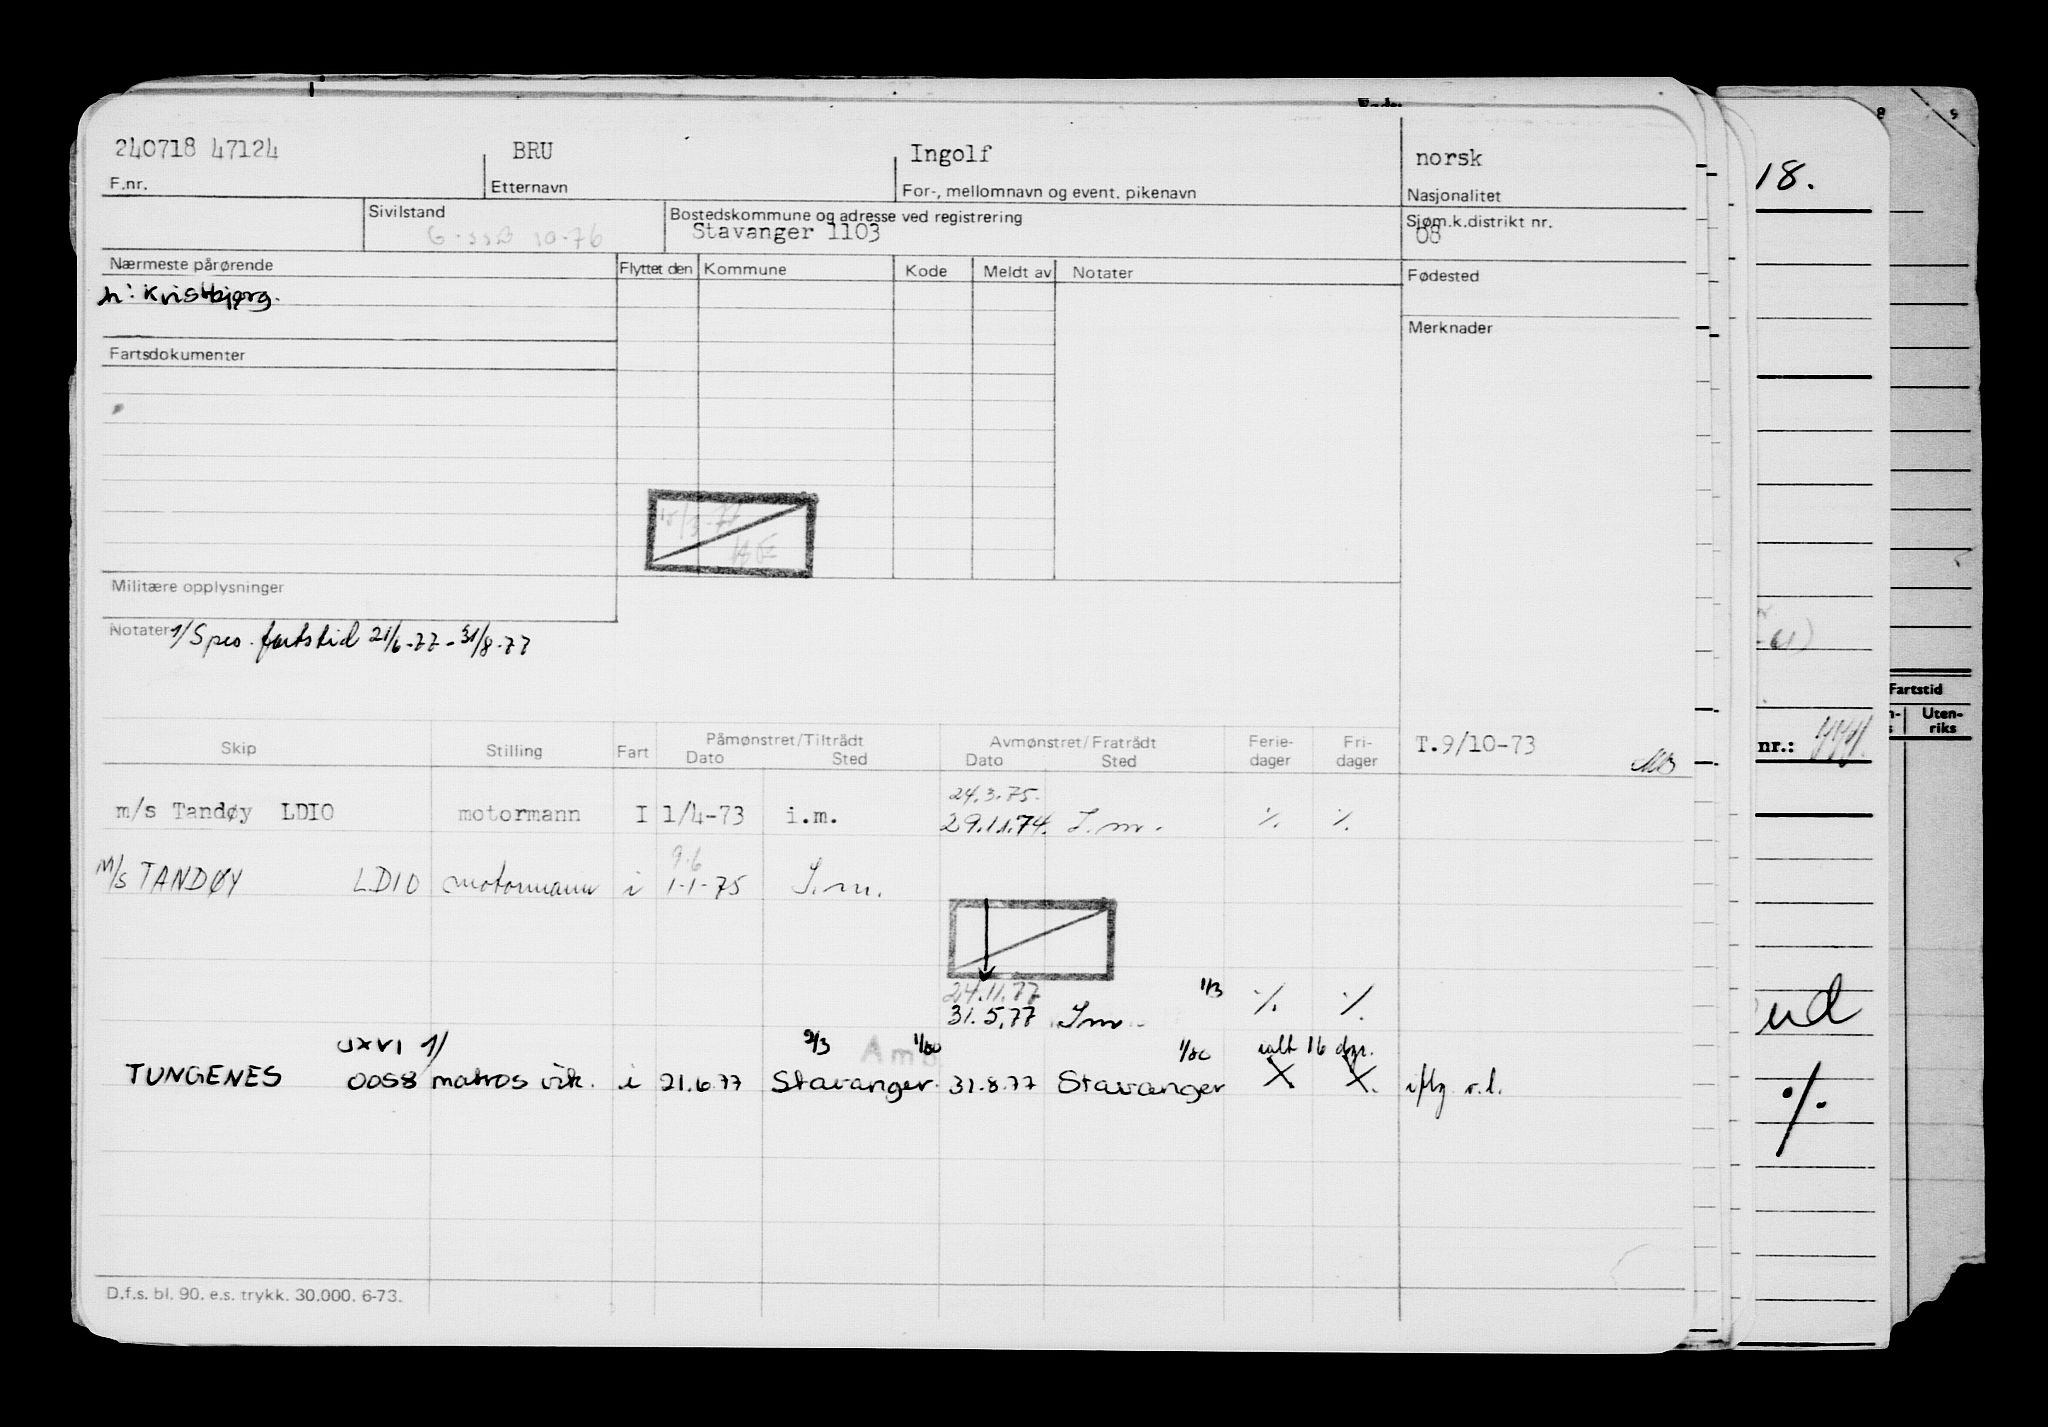 240718 47124 BRU Ingolf norsk
F.nr. Etternavn For-, mellomnavn og event. pikenavn Nasjonalitet
Sivilstand Bostedskommune og adresse ved registrering Sjøm.k.distrikt nr.
10-76 Stavanger 1103 08
Nærmeste pårørende Flyttet den Kommune Kode Meldt av Notater Fødested
h: Kristbjørg.
Merknader
Fartsdokumenter
Militære opplysninger
Notater 1/ Spes. fartstid 21/6-77 - 31/8-77
Skip Stilling Fart Påmønstret/Tiltrådt Avmønstret/Fratrådt Ferie- Fri- T.9/10-73
Dato Sted Dato Sted dager dager
24.3.75.
m/s Tandøy LDIO motormann I 1/4-73 i.m. 29.11.74. I.m. ·/. ·/.
9.6
M/s TANDØY LDIO motormann i 1-1-75 I.m.
24.11.77 1/3
31.5.77 I.m. ·/. ·/.
UXVI 1/ 2/3 1/80 1/80 ialt 16 dgr.
TUNGENES 0058 matros vik. i 21.6.77 Stavanger 31.8.77 Stavanger X X.
D.f.s. bl. 90. e.s. trykk. 30.000. 6-73.
18.
Fartstid
Uten-
riks
nr.:
·/.